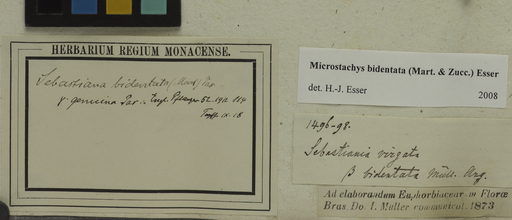 HERBARIUM REGIUM MONACENSE.
Sebastiana bidentata (Mart) Pax
γ genuina Pax in Engl. 1912
Microstachys bidentata (Mart. & Zucc.) Esser
det. H.-J. Esser 2008
1496-98.
Sebastiania virgata
β bidentata Müll. Arg.
Ad elaborandum Euphorbiacear. in Floræ
Bras. Do. J. Müller communicat. 1873